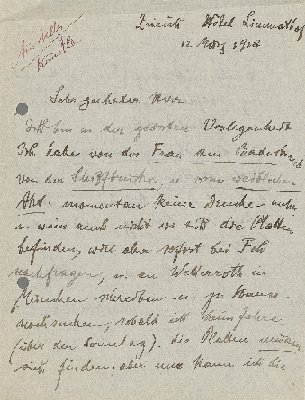 Zürich Hôtel Limmathof
12 März 1918
Sehr geehrter Herr
Ich bin in der grössten Verlegenheit
Ich habe von der Frau am
von den, u
Akt momentan keine Drucke mehr
u weiss auch nicht wo sich die Platten
befinden, will aber sofort bei
nachfragen, u. an Wolterroth in
München schreiben u. zu Hause
nachsuchen, sobald ich heimfahre
(über den Sonntag). Die Platten müssen
sich finden. aber nun kann ich die